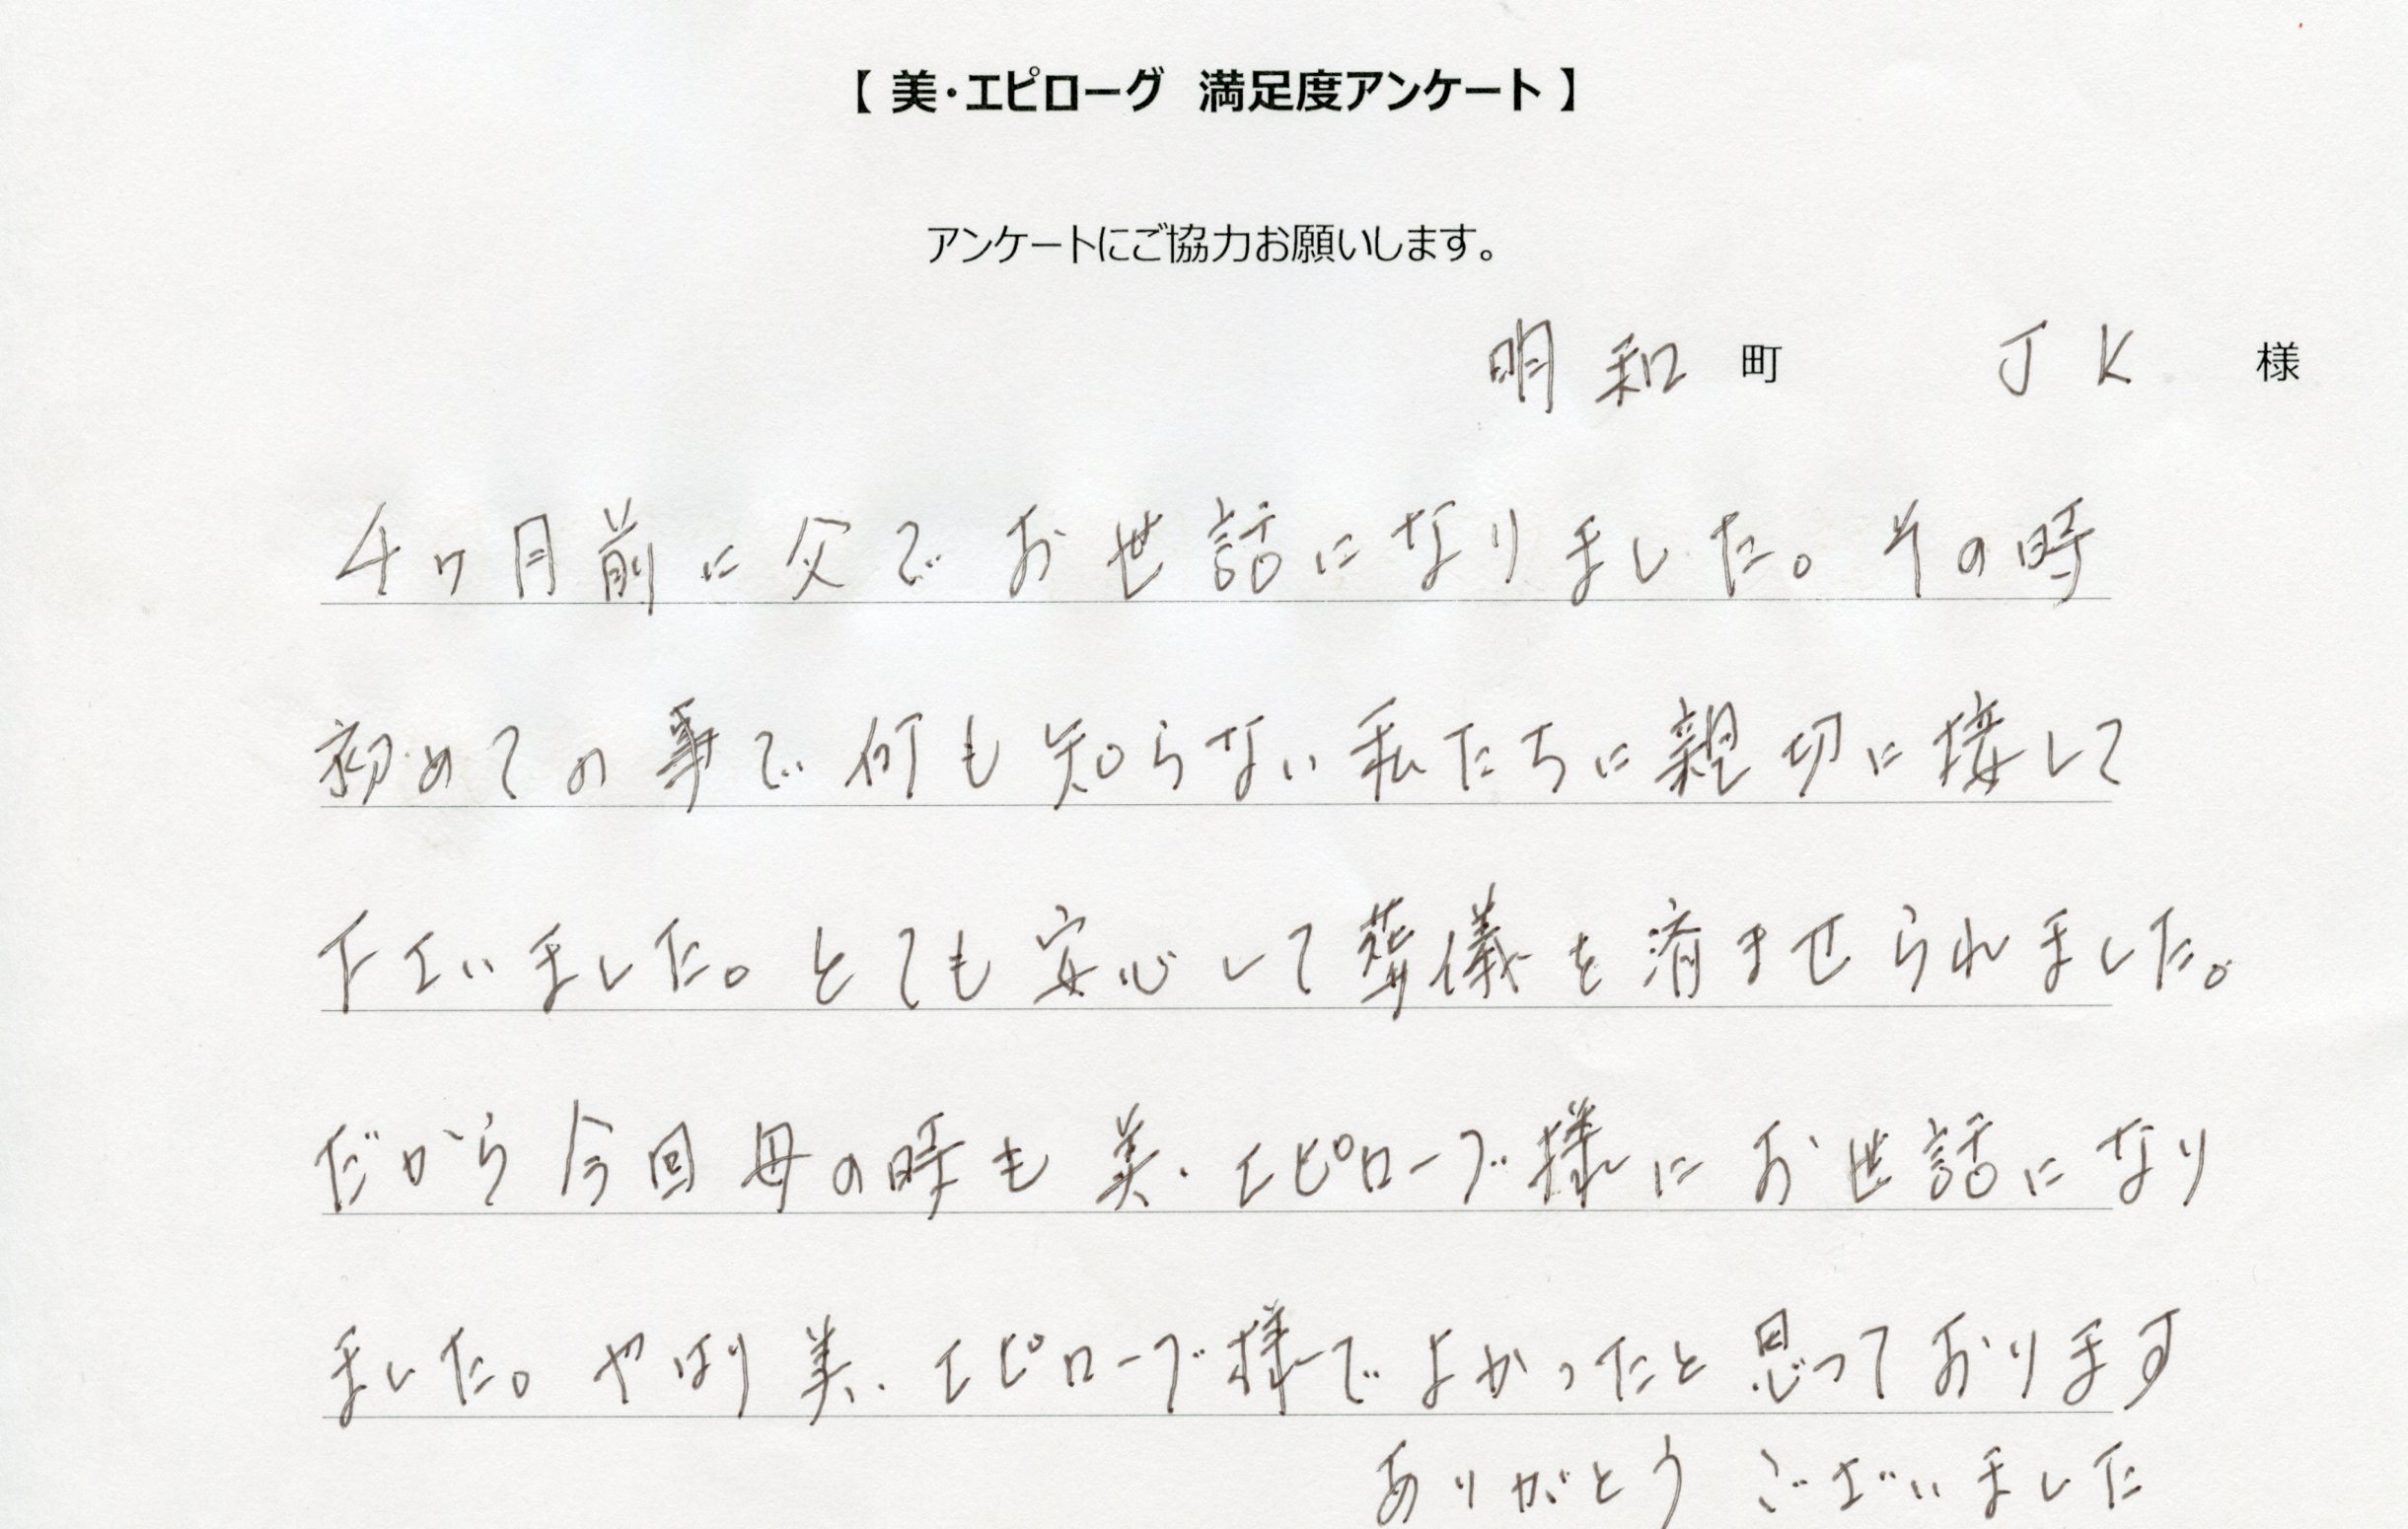 【 美・エピローグ　満足度アンケート 】
アンケートにご協力お願いします。
明和町　JK　様
4ヶ月前に父でお世話になりました。その時
初めての事で何も知らない私たちに親切に接して
下さいました。とても安心して葬儀を済ませられました。
だから今回母の時も美・エピローグ様にお世話になり
ました。やはり美・エピローグ様でよかったと思っております
ありがとうございました